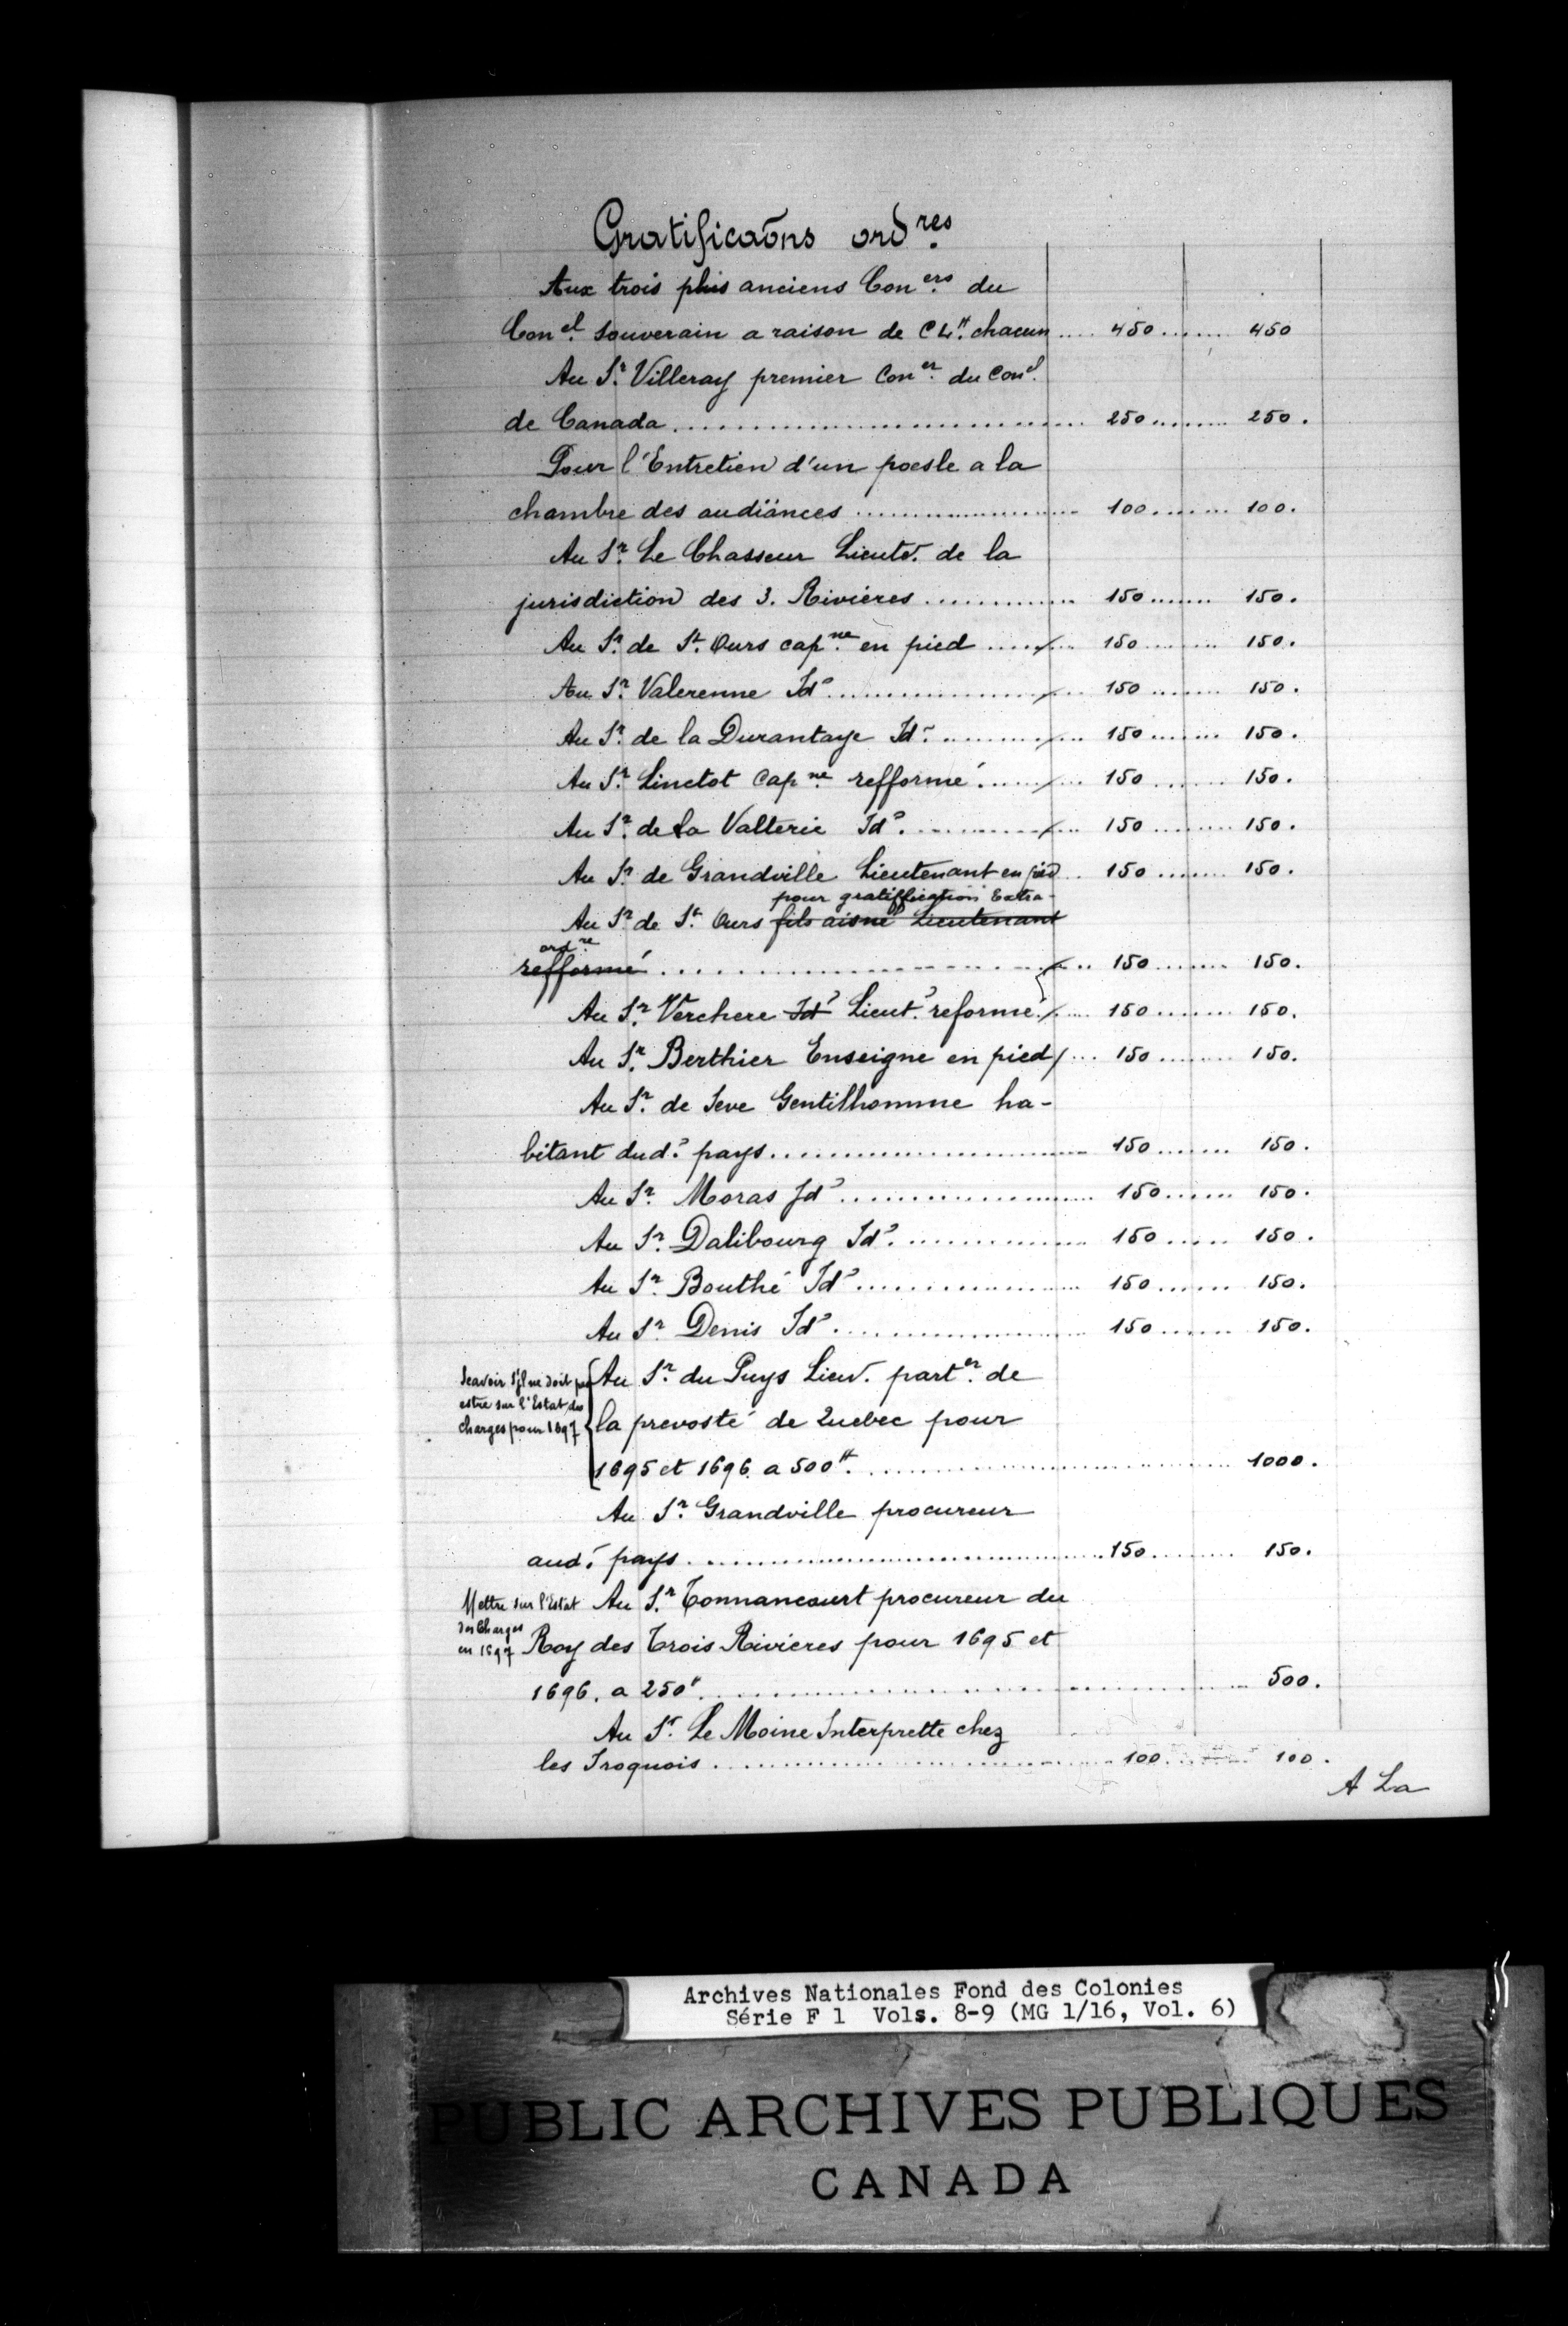 Gratificaõns ord.res
Aux trois plus anciens Con.ers du
Con.el souverain a raison de CL.tt chacun .... 450 ....... 450
Au S.r Villeray premier Con.er du Con.el
de Canada ............................ 250 ........ 250.
Pour l'Entretien d'un poesle a la
chambre des audiánces ...................... 100 ....... 100.
Au S.r Le Chasseur Lieute.t de la
jurisdiction des 3. Rivieres .............. 150 ....... 150.
Au S.r de S.t Ours cap.ne en pied ........ 150 ........ 150.
Au S.r Valerenne Id.o .................... 150 ........ 150.
Au S.r de la Durantaye Id. .............. 150 ........ 150.
Au S.r Linctot Cap.ne refformé .......... 150 ....... 150.
Au S.r de la Valterie Id.o .............. 150 ........ 150.
Au S.r de Grandville Lieutenant en pied .. 150 ....... 150.
pour gratiffication Extra-
Au S.r de S.t Ours fils aisné Lieutenant
ord.re
refformé .......................... 150 ........ 150.
Au S.r Verchere Id.o Lieut.t reformé ..... 150 ........ 150.
Au S.r Berthier Enseigne en pied ... 150 ........ 150.
Au S.r de Seve Gentilhomme ha-
bitant dud.t pays .......................... 150 ....... 150.
Au S.r Moras Id.o ...................... 150 ...... 150.
Au S.r Dalibourg Id.o ................ 150 ..... 150.
Au S.r Bouthé Id.o .................. 150 ...... 150.
Au S.r Denis Id.o .................... 150 ....... 150.
Scavoir s'il ne doit pas
estre sur l'Estat des
charges pour 1697
Au S.r du Puys Lieu.t part.er de
la prevosté de Quebec pour
1695 et 1696 a 500.tt .......................... 1000.
Au S.r Grandville procureur
aud.t pays ................................ 150 ........ 150.
Mettre sur l'Estat
des Charges
en 1697
Au S.r Tonnancourt procureur du
Roy des Trois Rivieres pour 1695 et
1696. a 250.tt .................................. 500.
Au S.r Le Moine Interprette chez
les Iroquois .............................. 100 ........ 100.
A La
Archives Nationales Fond des Colonies
Série F 1 Vols. 8-9 (MG 1/16, Vol. 6)
PUBLIC ARCHIVES PUBLIQUES
CANADA